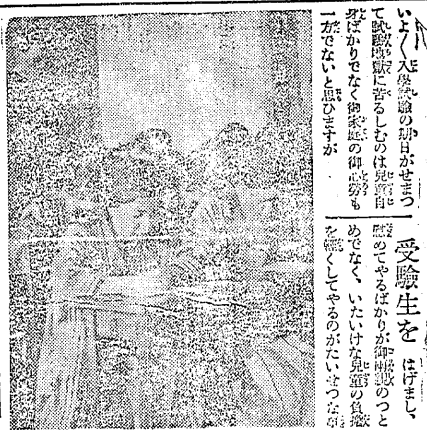 いよ〱入學試驗の期日がせまつ
て試驗地獄に苦るしむのは兒童自
身ばかりでなく御家庭の御心勞も
一方でないと思ひますが
受驗生を はげまし、
慰めてやるばかりが御兩親のつと
めでなく、いたいけな兒童の負擔
を輕くしてやるのがたいせつな事